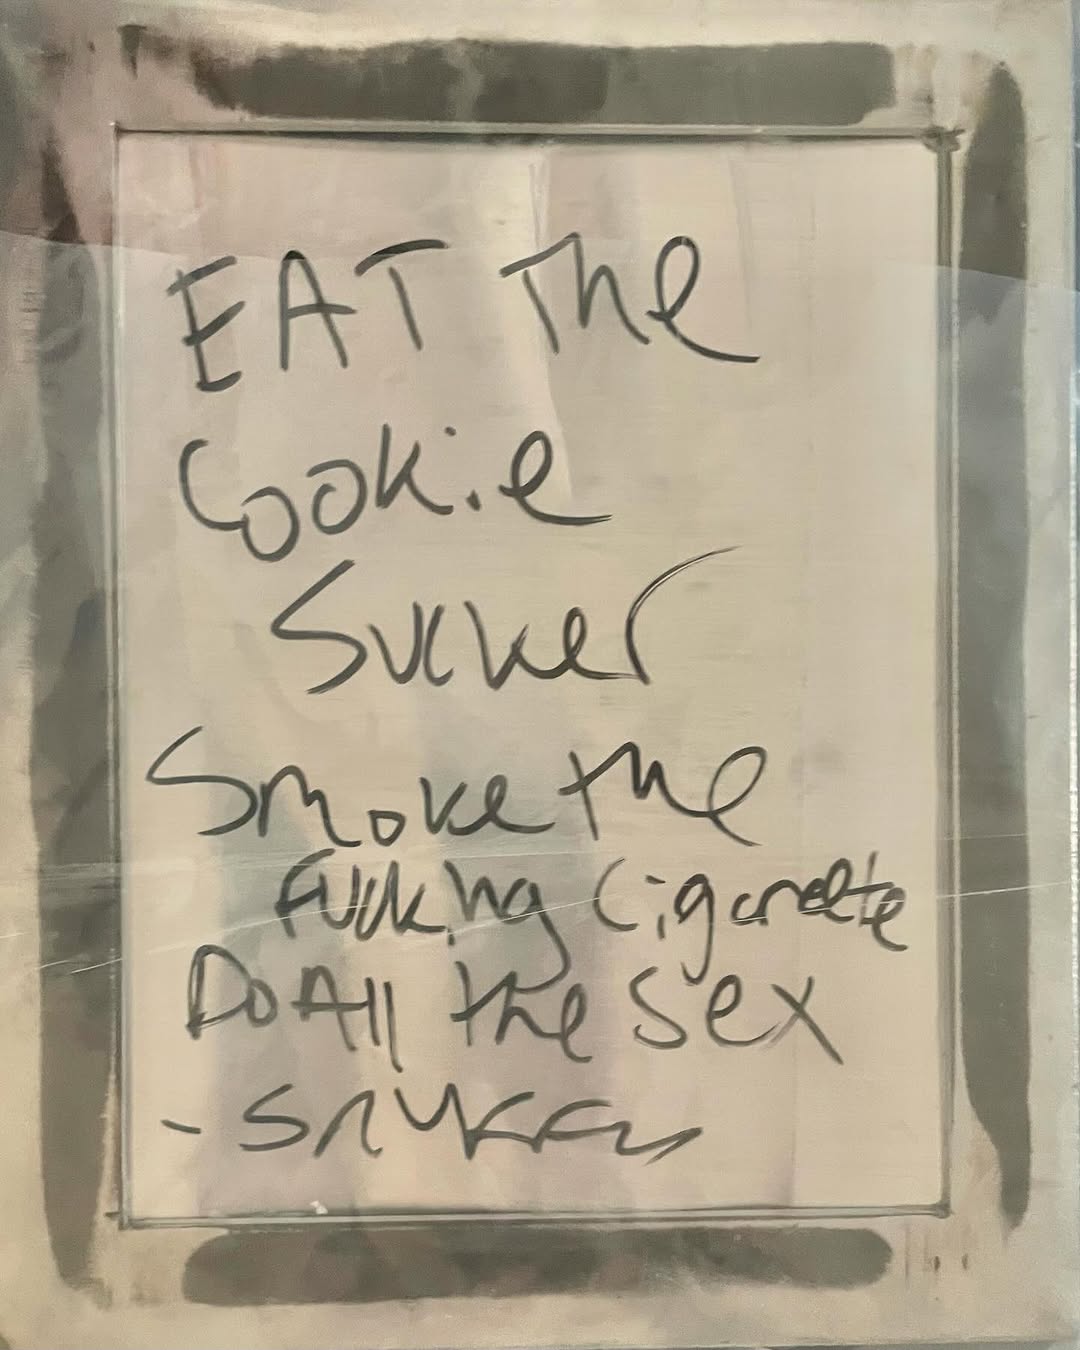 EAT The
Cookie
Sucker
Smoke the
Fucking Cigarette
Do All the Sex